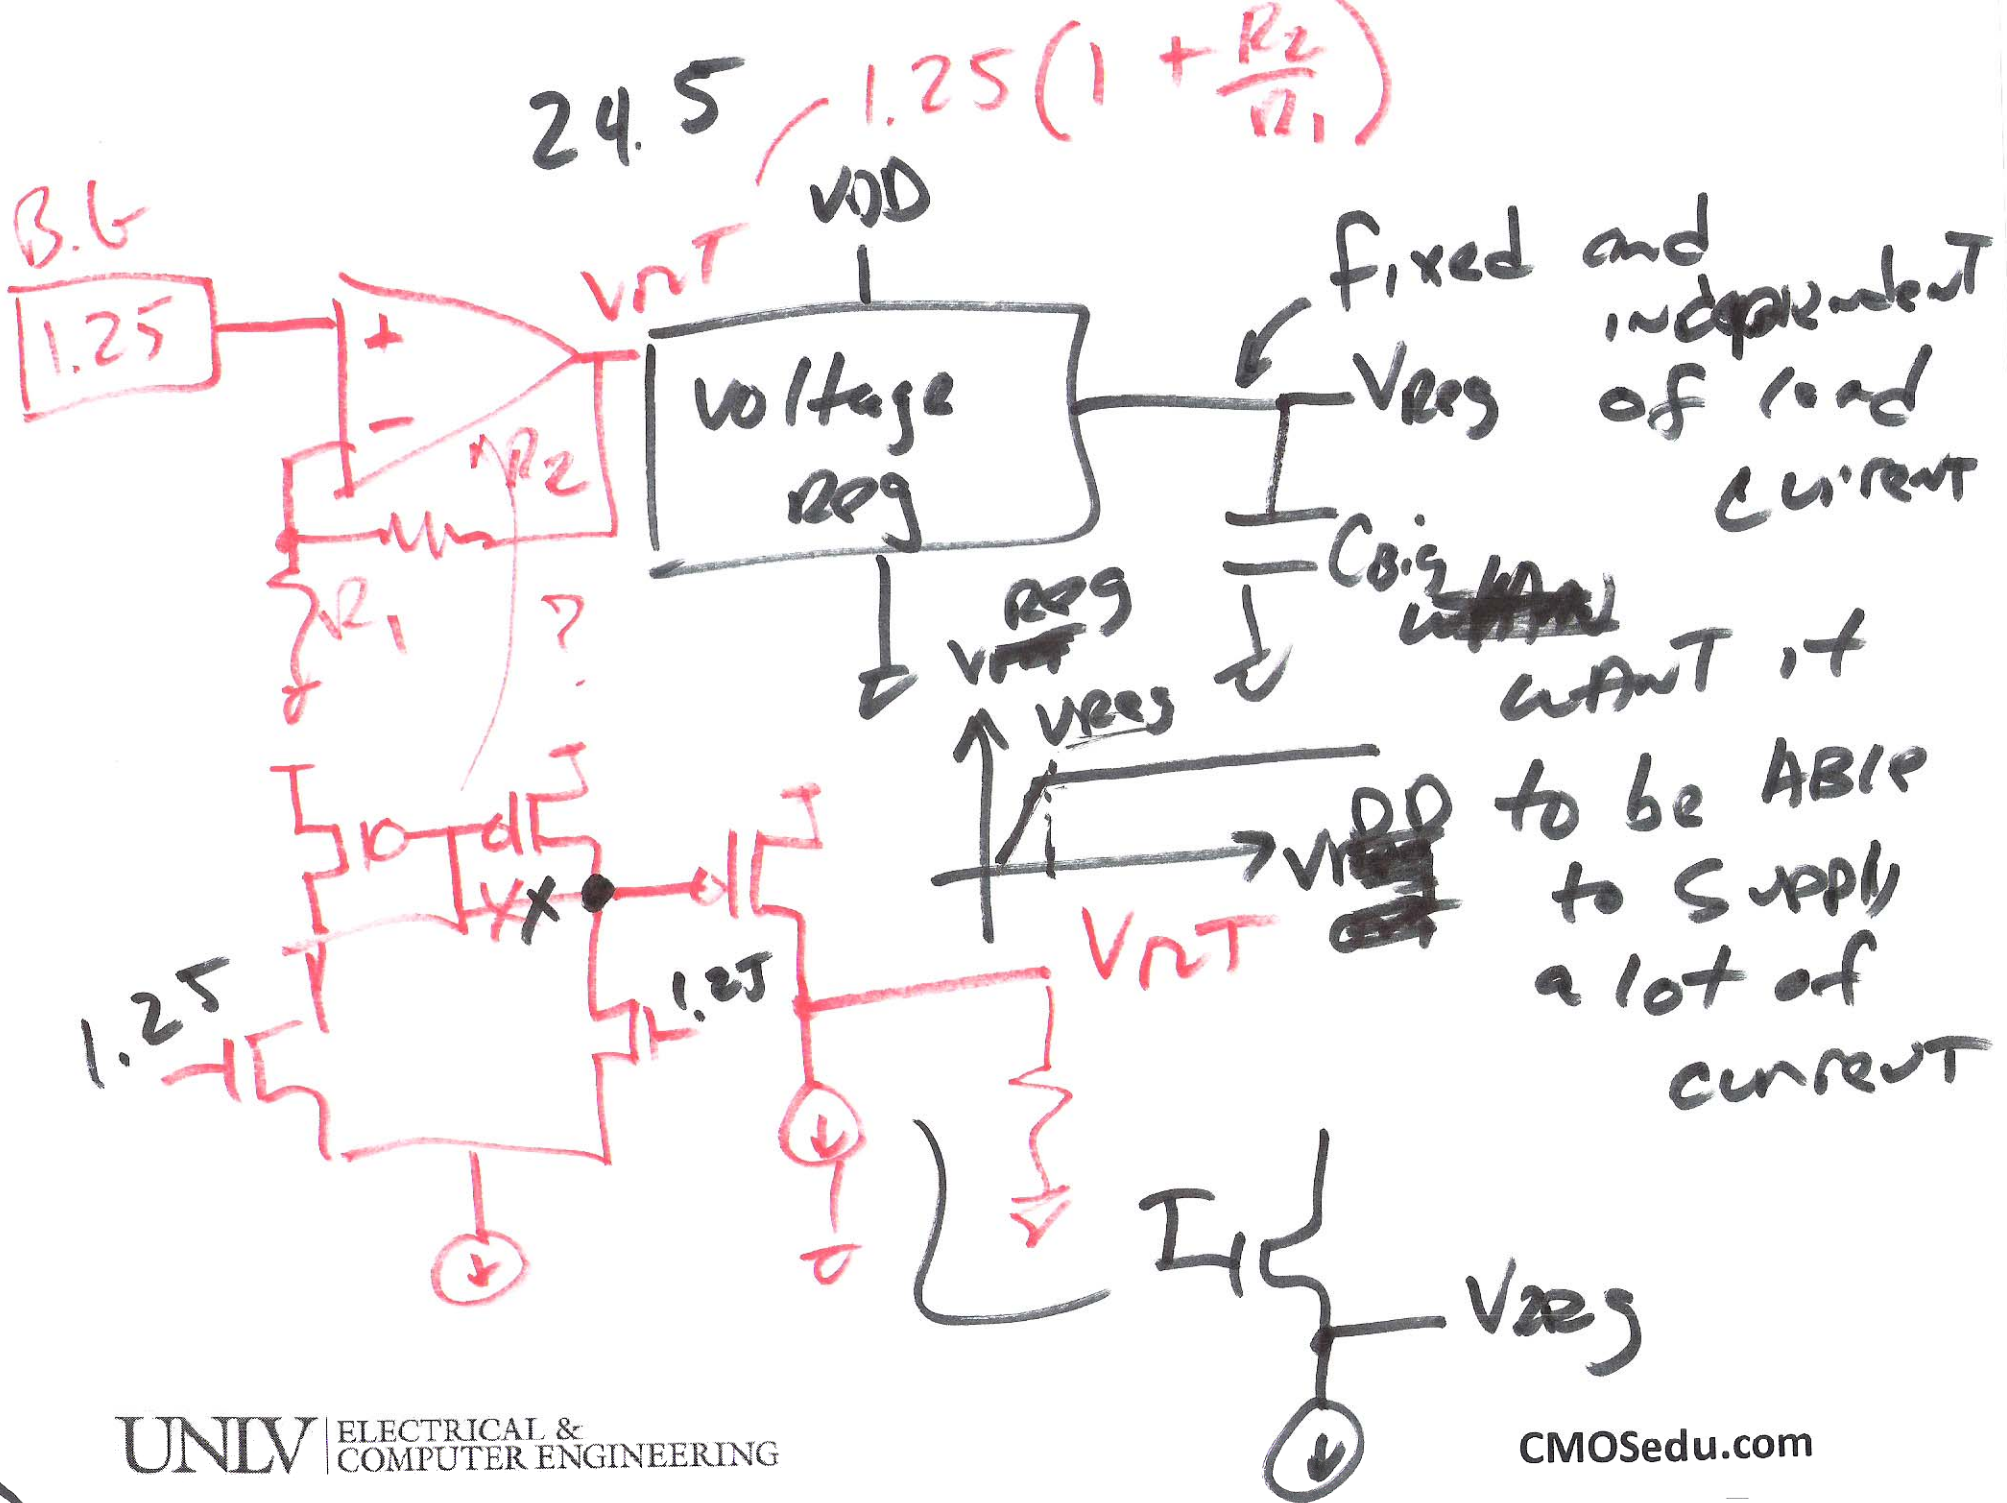 24.5
1.25(1 + R2/R1)
B.G
1.25
+
-
VRT
VDD
Voltage
Reg
fixed and
independent
of load
current
VReg
CBig
R2
R1
?
WANT it
to be ABle
to Supply
a lot of
current
Reg
VReg
VDD
X
1.25
1.25
VRT
VReg
UNLV | ELECTRICAL &
COMPUTER ENGINEERING
CMOSedu.com